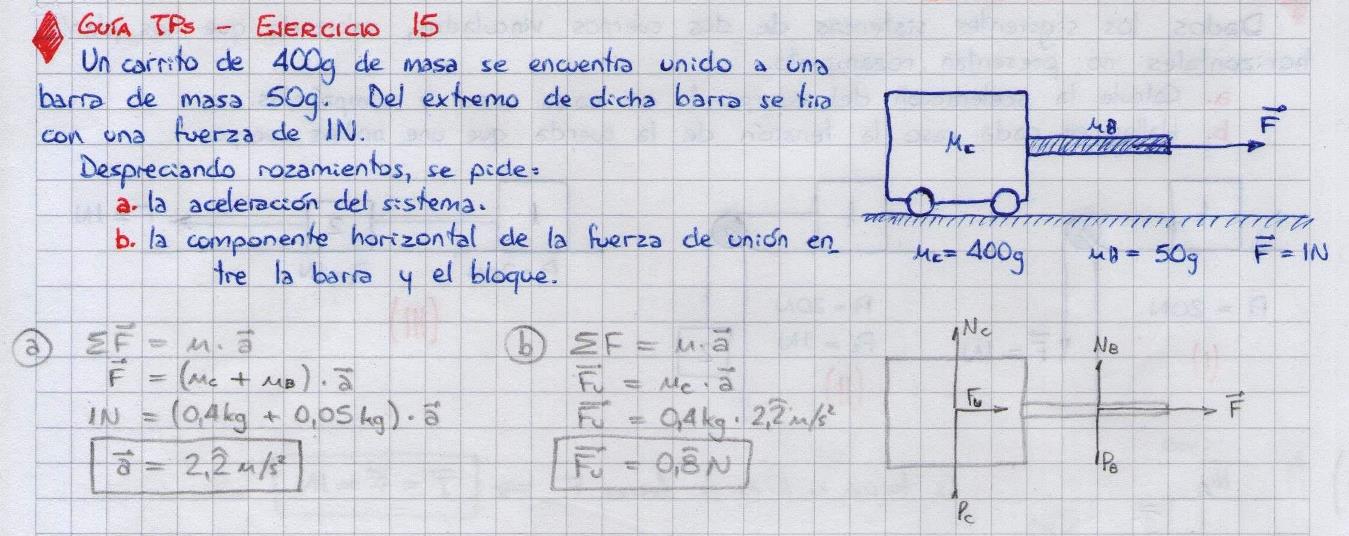 GUÍA TPs - EJERCICIO 15
Un carrito de 400g de masa se encuentra unido a una
barra de masa 50g. Del extremo de dicha barra se tira
con una fuerza de 1N.
Despreciando rozamientos, se pide:
a. la aceleración del sistema.
b. la componente horizontal de la fuerza de unión en_
tre la barra y el bloque.
mc
mB
F⃗
mc = 400g mB = 50g F⃗ = 1N
a ΣF⃗ = m. a⃗
F⃗ = (mc + mB) . a⃗
1N = (0,4kg + 0,05kg) . a⃗
a⃗ = 2,2̂ m/s²
b ΣF = m.a⃗
F⃗u = mc . a⃗
F⃗u = 0,4kg . 2,2̂ m/s²
F⃗u = 0,8̂ N
Nc
Fu
Pc
NB
F⃗
PB